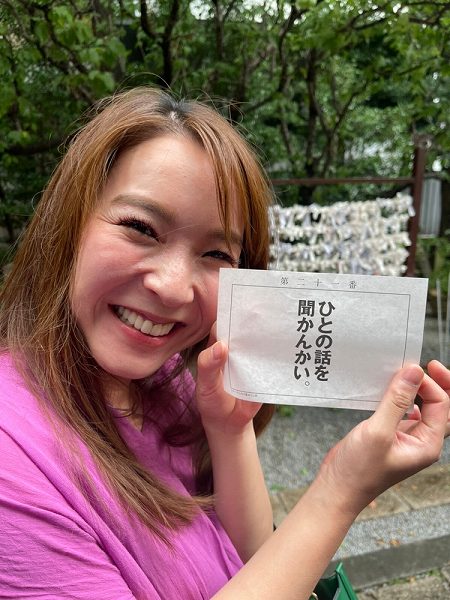 第二十一番
ひとの話を
聞かんかい。